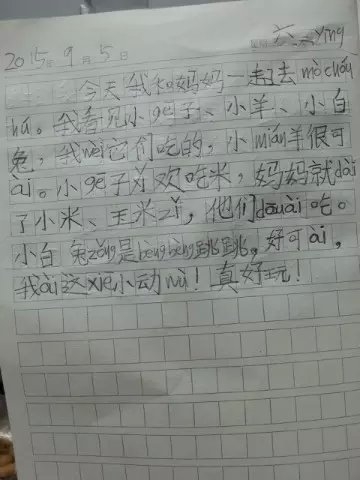 2015年9月5日 星期六 天气 yīng
今天我和妈妈一起去 mò chóu
hú。我看见小gē子、小羊、小白
兔，我wèi它们吃的，小mián羊很可
ài。小gē子xǐ欢吃米，妈妈就dài
了小米、玉米zǐ，他们dōu ài吃。
小白兔zǒng是bèng bèng跳跳，好可ài，
我ài这xiē小动wù！真好玩！